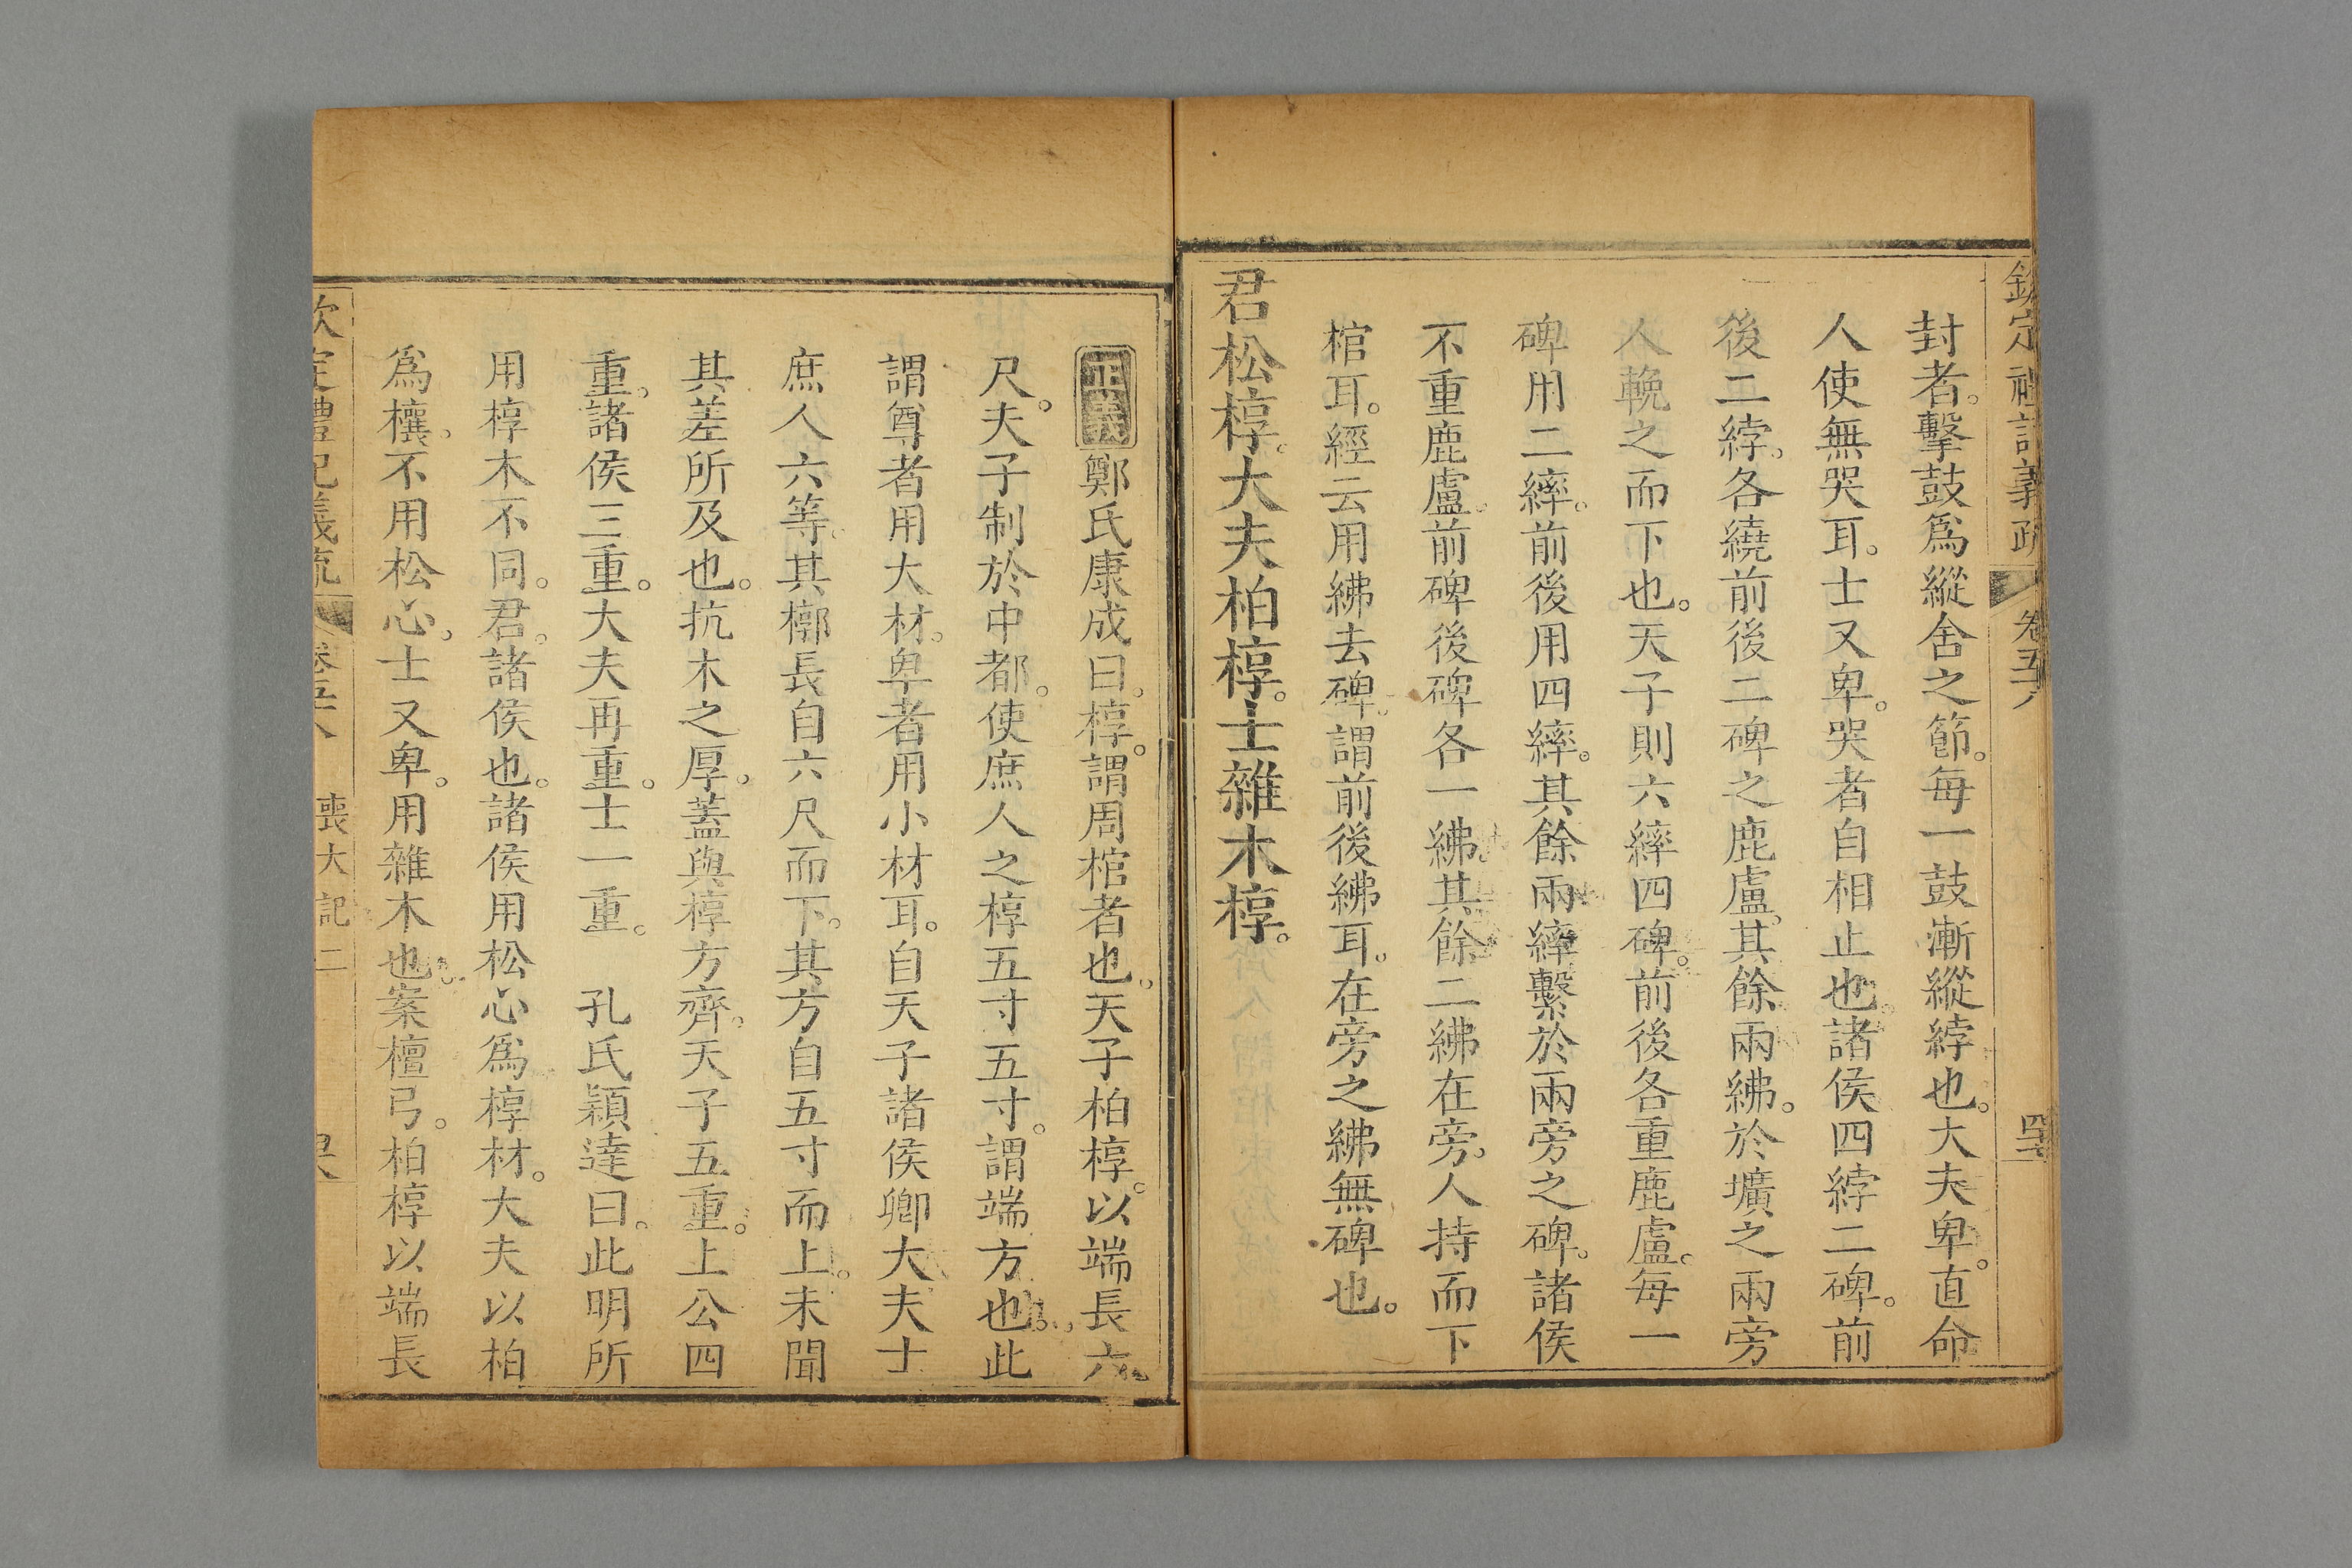 欽定禮記義疏 卷五十八
封者。擊鼓爲縱舍之節。每一鼓漸縱綍也。大夫卑。直命
人使無哭耳。士又卑。哭者自相止也。諸侯四綍二碑。前
後二綍。各繞前後二碑之鹿盧。其餘兩紼。於壙之兩旁
人輓之而下也。天子則六繂四碑。前後各重鹿盧。每一
碑用二繂。前後用四繂。其餘兩繂繫於兩旁之碑。諸侯
不重鹿盧。前碑後碑各一紼。其餘二紼在旁。人持而下
棺耳。經云用紼去碑。謂前後紼耳。在旁之紼無碑也。
君松椁。大夫柏椁。士雜木椁。
正義鄭氏康成曰。椁。謂周棺者也。天子柏椁。以端長六
尺。夫子制於中都。使庶人之椁五寸五寸。謂端方也。此
謂尊者用大材。卑者用小材耳。自天子諸侯卿大夫士
庶人六等。其槨長自六尺而下。其方自五寸而上。未聞
其差所及也。抗木之厚。蓋與椁方齊。天子五重。上公四
重。諸侯三重。大夫再重。士一重。 孔氏穎達曰。此明所
用椁木不同。君。諸侯也。諸侯用松心爲椁材。大夫以柏
爲欀。不用松心。士又卑。用雜木也。案檀弓。柏椁以端長
欽定禮記義疏 卷五十八 喪大記二